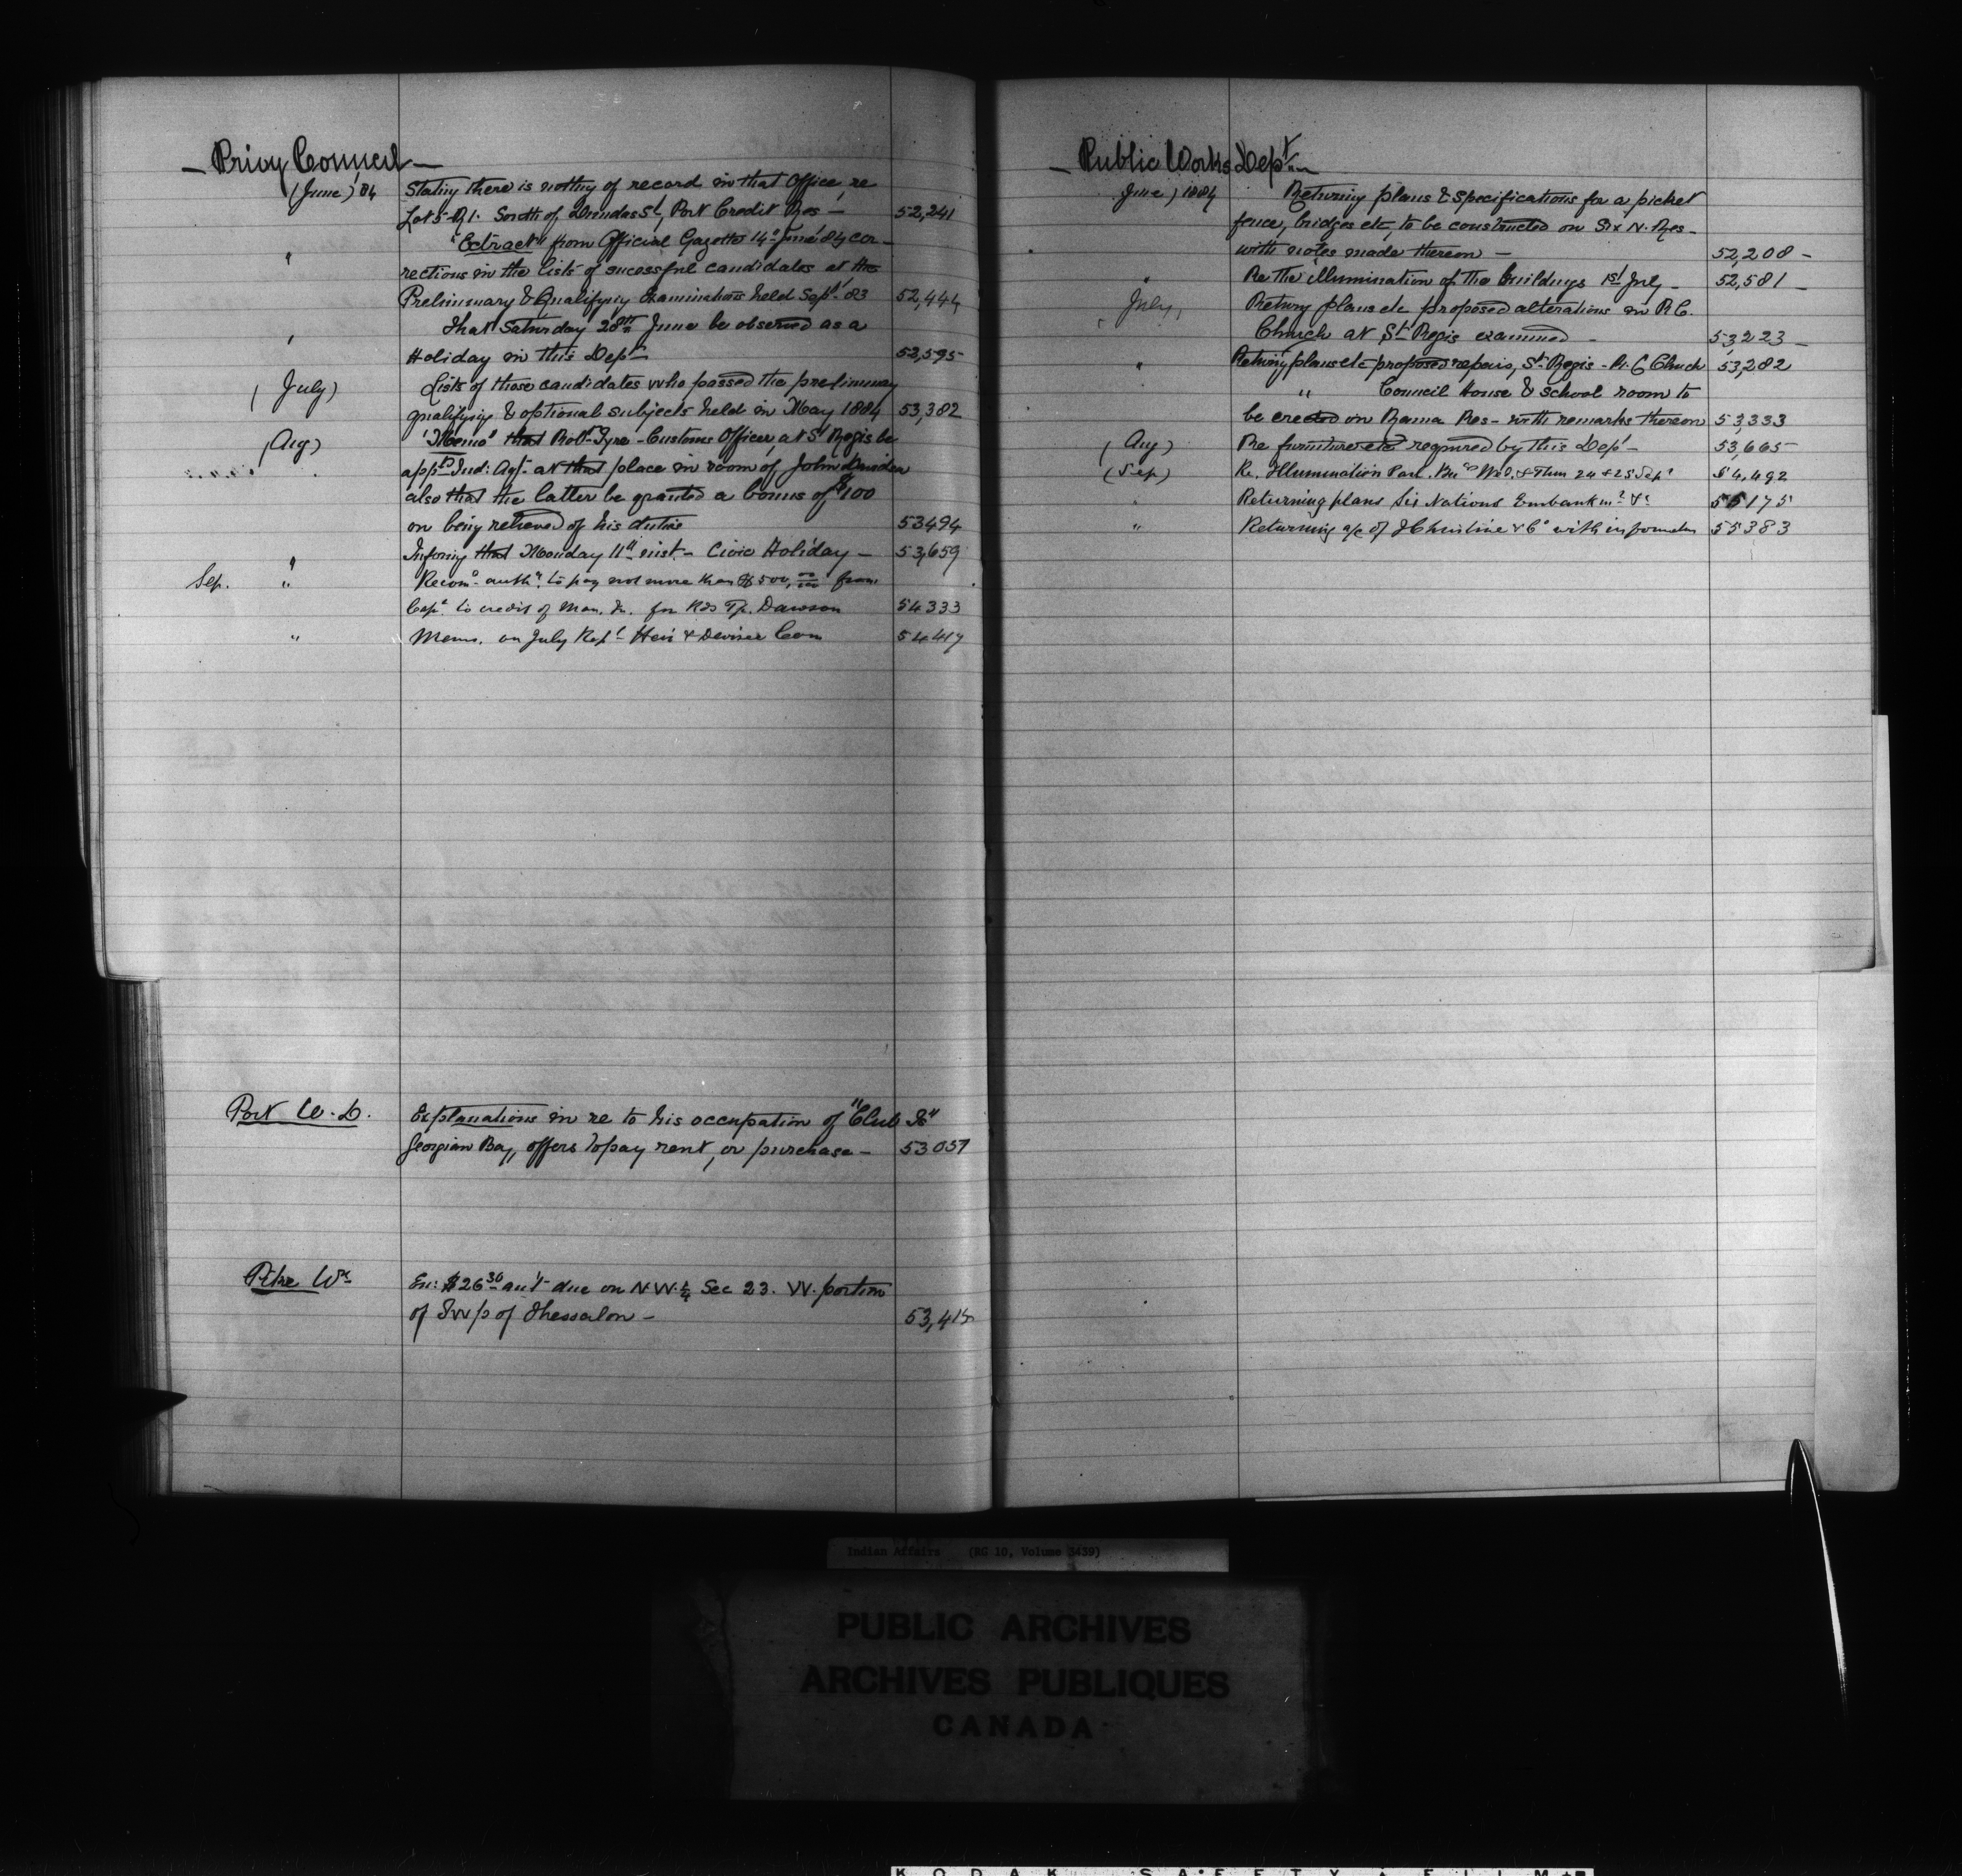 — Privy Council —
(June) '84 Stating there is nothing of record in that Office re
Lot 5 R 1. South of Dundas St, Port Credit Res — 52,241
" "Extract" from Official Gazette 14 June 84 cor-
rections in the lists of sucessful candidates at the
Preliminary & Qualifying Examinations held Sept. 83 52,444
" That Saturday 28th June be observed as a
Holiday in this Dept 52,595
(July) Lists of those candidates who passed the preliminary
qualifying & optional subjects held in May 1884 53,382
(Aug) "Memo" that Robt Tyre - Customs Officer at St Regis be
appt'd Ind: Agt. at that place in room of John Davidson
also that the latter be granted a bonus of $100
on being relieved of his duties 53494
" Informg that Monday 11th inst - Civic Holiday — 53,659
Sep. " Recomd authy to pay not more than $500, 00/100 from
Capl to credit of Man. In. for Rds Tp. Dawson 54333
" Memo. on July Rept Heir & Devisee Com 54419
Port W. D. Explanations in re to his occupation of "Club Is"
Georgian Bay, offers to pay rent, or purchase — 53057
Pike Wm En: $26 30 am't due on N.W. ¼ Sec 23. W. portion
of Twp of Thessalon — 53,415
— Public Works Dept —
June) 1884 Returning plans & Specifications for a picket
fence, bridges etc, to be constructed on Six N. Res -
with notes made thereon — 52,208 -
" Re the illumination of the buildings 1st July - 52,581 -
(July) Returng plans etc proposed alterations in R.C.
Church at St Regis examined - 53,223 -
" Returng plans etc proposed repairs, St Regis - R. C Church 53,282
" Council House & School room to
be erected on Rama Res - with remarks thereon 53,333
(Aug) Re furniture etc required by this Dept - 53,665
(Sep) Re. Illumination Parl. Bus Wed. & Thur 24 & 25 Sept 54,492
" Returning plans Six Nations Embankmt &c 55175
" Returning a/c of J Christine & Co with information 55383
Indian Affairs (RG 10, Volume 3439)
PUBLIC ARCHIVES
ARCHIVES PUBLIQUES
CANADA
KODAK SAFETY FILM